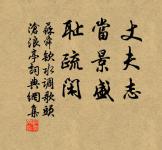 丈夫志
當景盛
恥疏閑
蘇舜欽水調歌頭
滄浪亭詞典網集